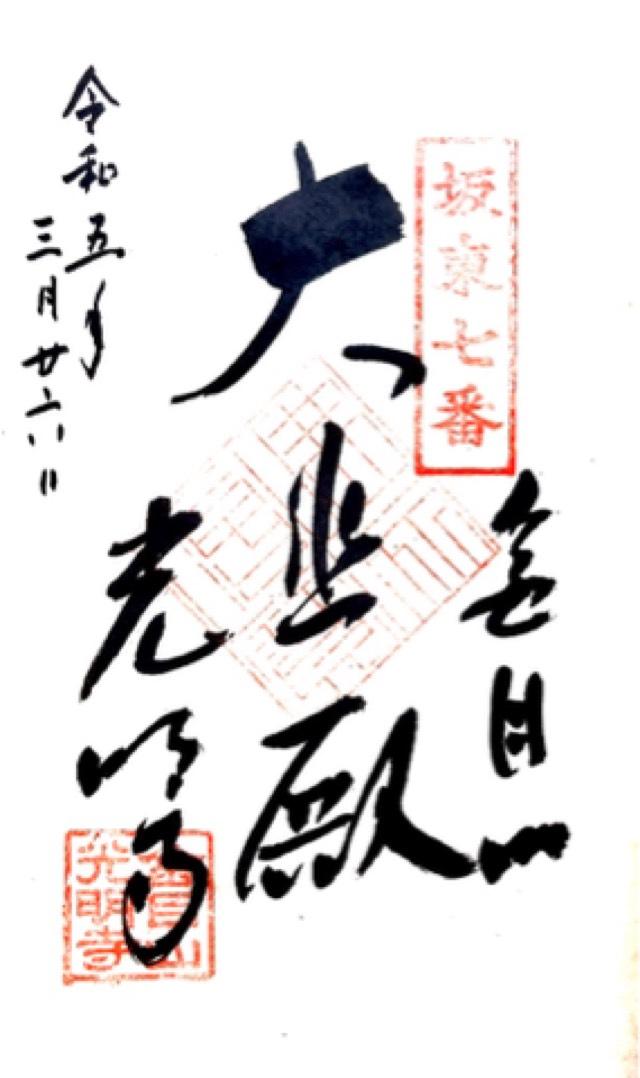 坂東七番
金目山
大悲殿
光明寺
令和五年
三月廿六日
金目山
光明寺